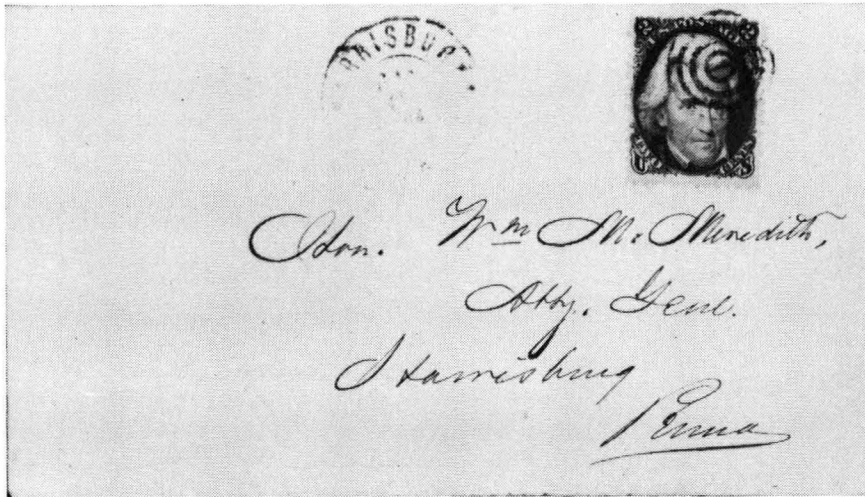 RRISBURG
U S
Hon. Wm M. Meredith,
Atty. Genl.
Harrisburg
Penna